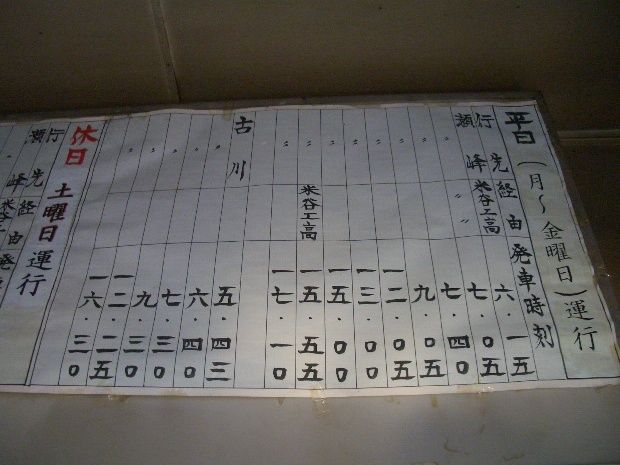 平日(月～金曜日)運行
行先 経由 発車時刻
瀬峰 米谷工高 六・一五
〃 〃 七・〇五
〃 七・四〇
〃 九・〇五
〃 一二・〇五
〃 一三・〇〇
〃 一五・〇〇
〃 米谷工高 一五・五五
〃 一七・一〇
古川 五・四三
〃 六・四〇
〃 七・三〇
〃 九・三〇
〃 一二・二五
〃 一六・三〇
休日 土曜日運行
行先 経由 発
瀬峰 米谷